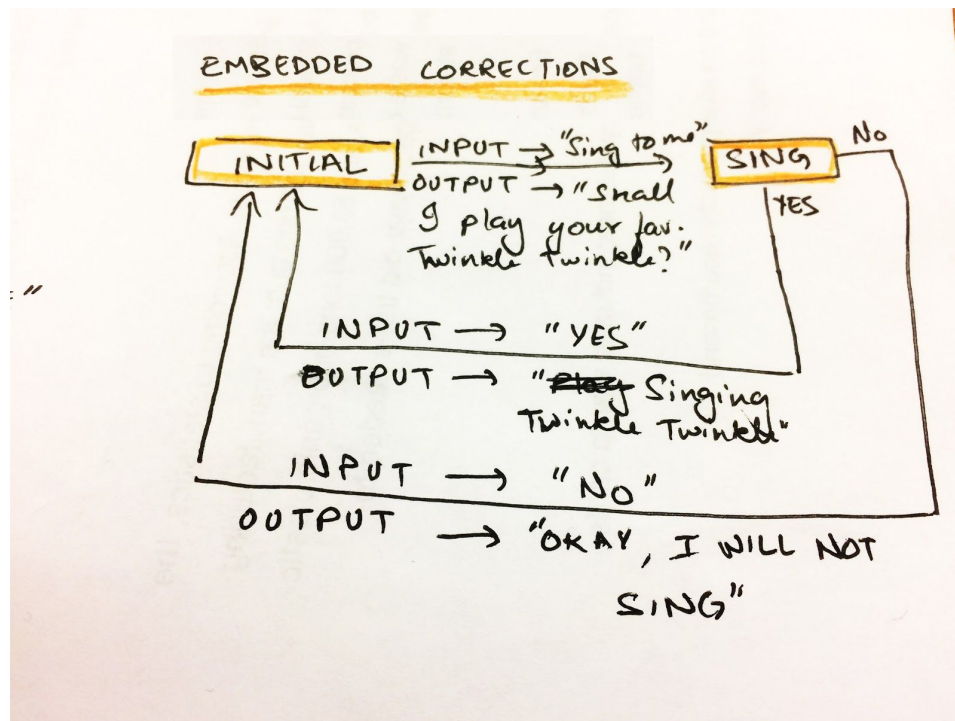 EMBEDDED CORRECTIONS
INITIAL
INPUT → "Sing to me"
SING
No
OUTPUT → "Shall
I play your fav.
Twinkle twinkle?"
YES
"
INPUT → "YES"
OUTPUT → "Singing
Twinkle Twinkle"
INPUT → "No"
OUTPUT → "OKAY, I WILL NOT
SING"